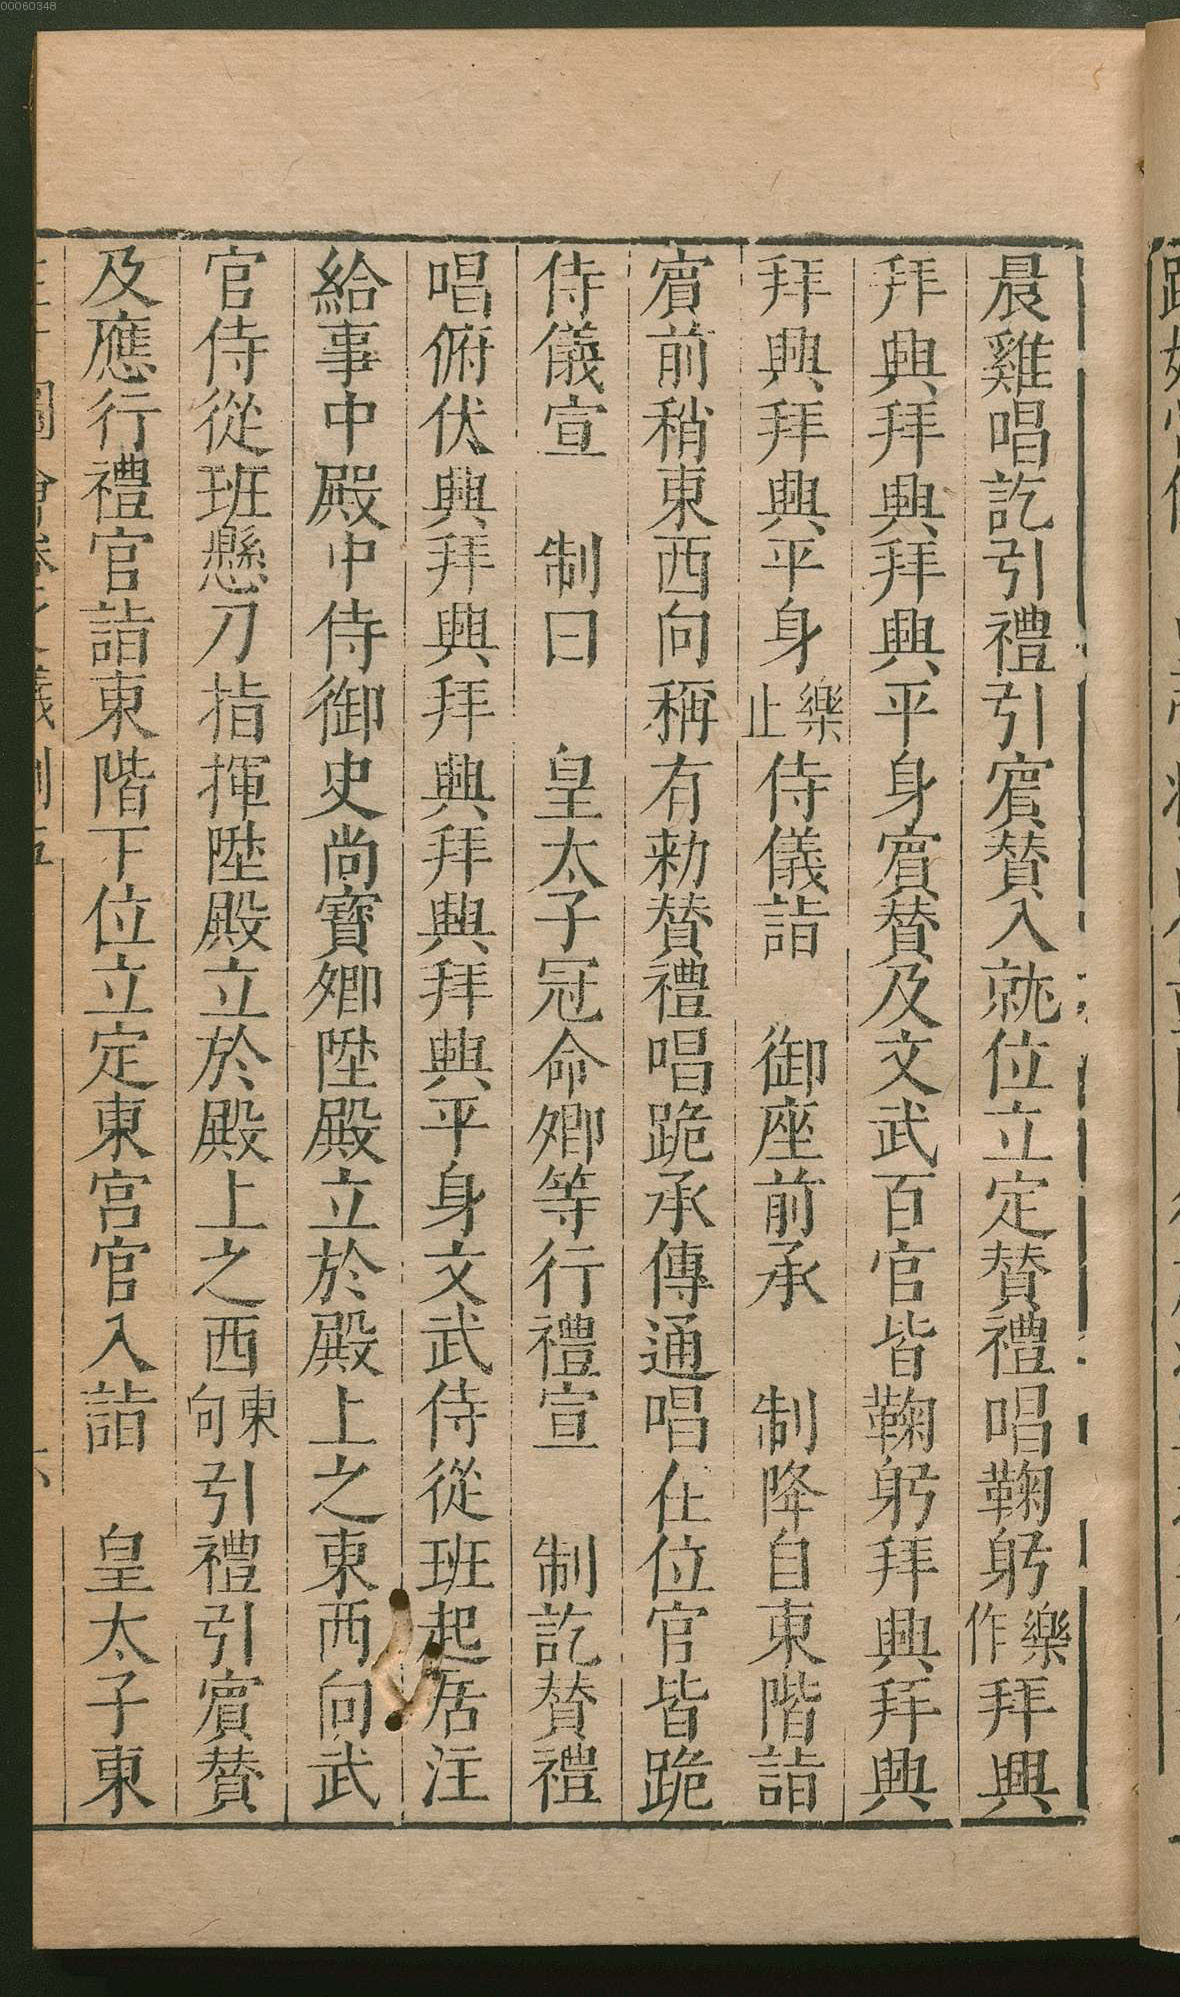 00060348
晨雞唱訖引禮引賔賛入就位立定賛禮唱鞠躬樂作拜興
拜興拜興拜興平身賔賛及文武百官皆鞠躬拜興拜興
拜興拜興平身樂止侍儀詣 御座前承 制降自東階詣
賔前稍東西向稱有勑賛禮唱跪承傳通唱仕位官皆跪
侍儀宣 制曰 皇太子冠命卿等行禮宣 制訖賛禮
唱俯伏興拜興拜興拜興拜興平身文武侍從班起居注
給事中殿中侍御史尚寶卿陞殿立於殿上之東西向武
官侍從班懸刀指揮陞殿立於殿上之西東向引禮引賔賛
及應行禮官詣東階下位立定東宮官入詣 皇太子東